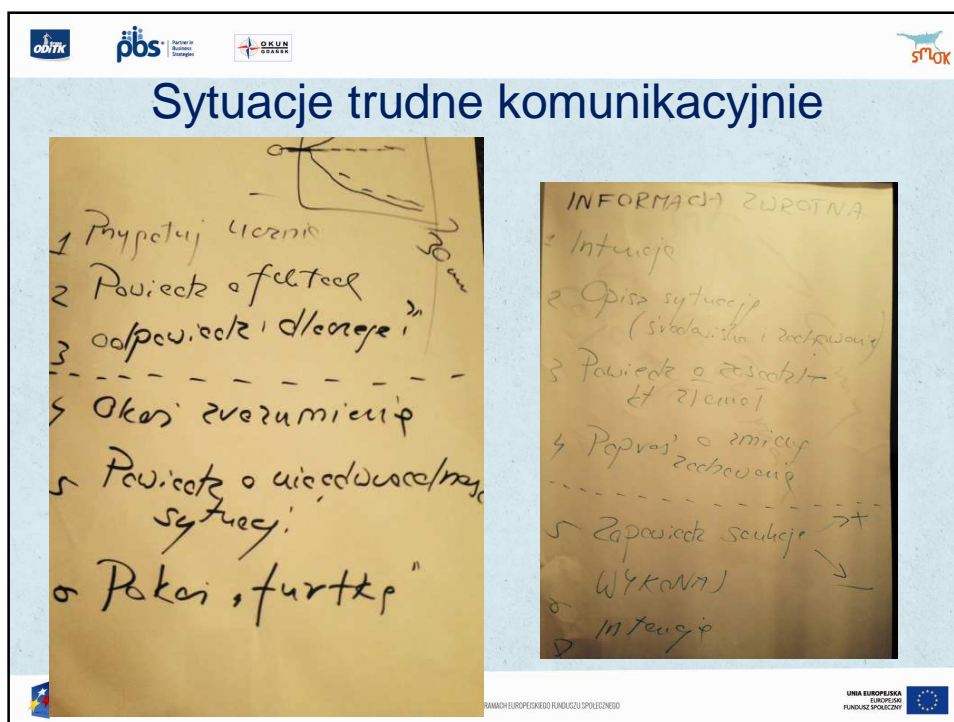 ODITK
pbs
Partner in
Business
Strategies
OKUN
GDAŃSK
SMOK
Sytuacje trudne komunikacyjnie
30 cm
1
2 Powiedz o
3 odpowiedz i dlaczego
4 Okaż zrozumienie
5 Powiedz o
sytuacji
6 Pokaż „furtkę”
INFORMACJA ZWROTNA
1
2 Opisz sytuację
(środowisko i zachowanie)
3 Powiedz o
4 Poproś o zmianę
zachowania
5 Zapowiedz sankcje +
WYKONAJ
6
Intencja
RAMACH EUROPEJSKIEGO FUNDUSZU SPOŁECZNEGO
UNIA EUROPEJSKA
EUROPEJSKI
FUNDUSZ SPOŁECZNY